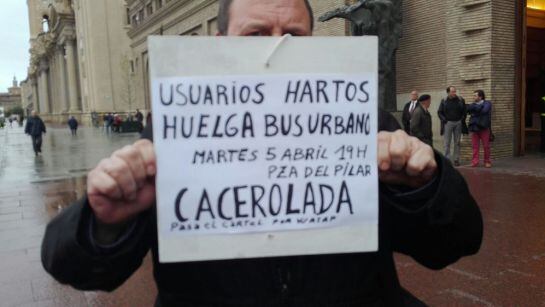 USUARIOS HARTOS
HUELGA BUS URBANO
MARTES 5 ABRIL 19H
PZA DEL PILAR
CACEROLADA
PASA EL CARTEL POR WASAP